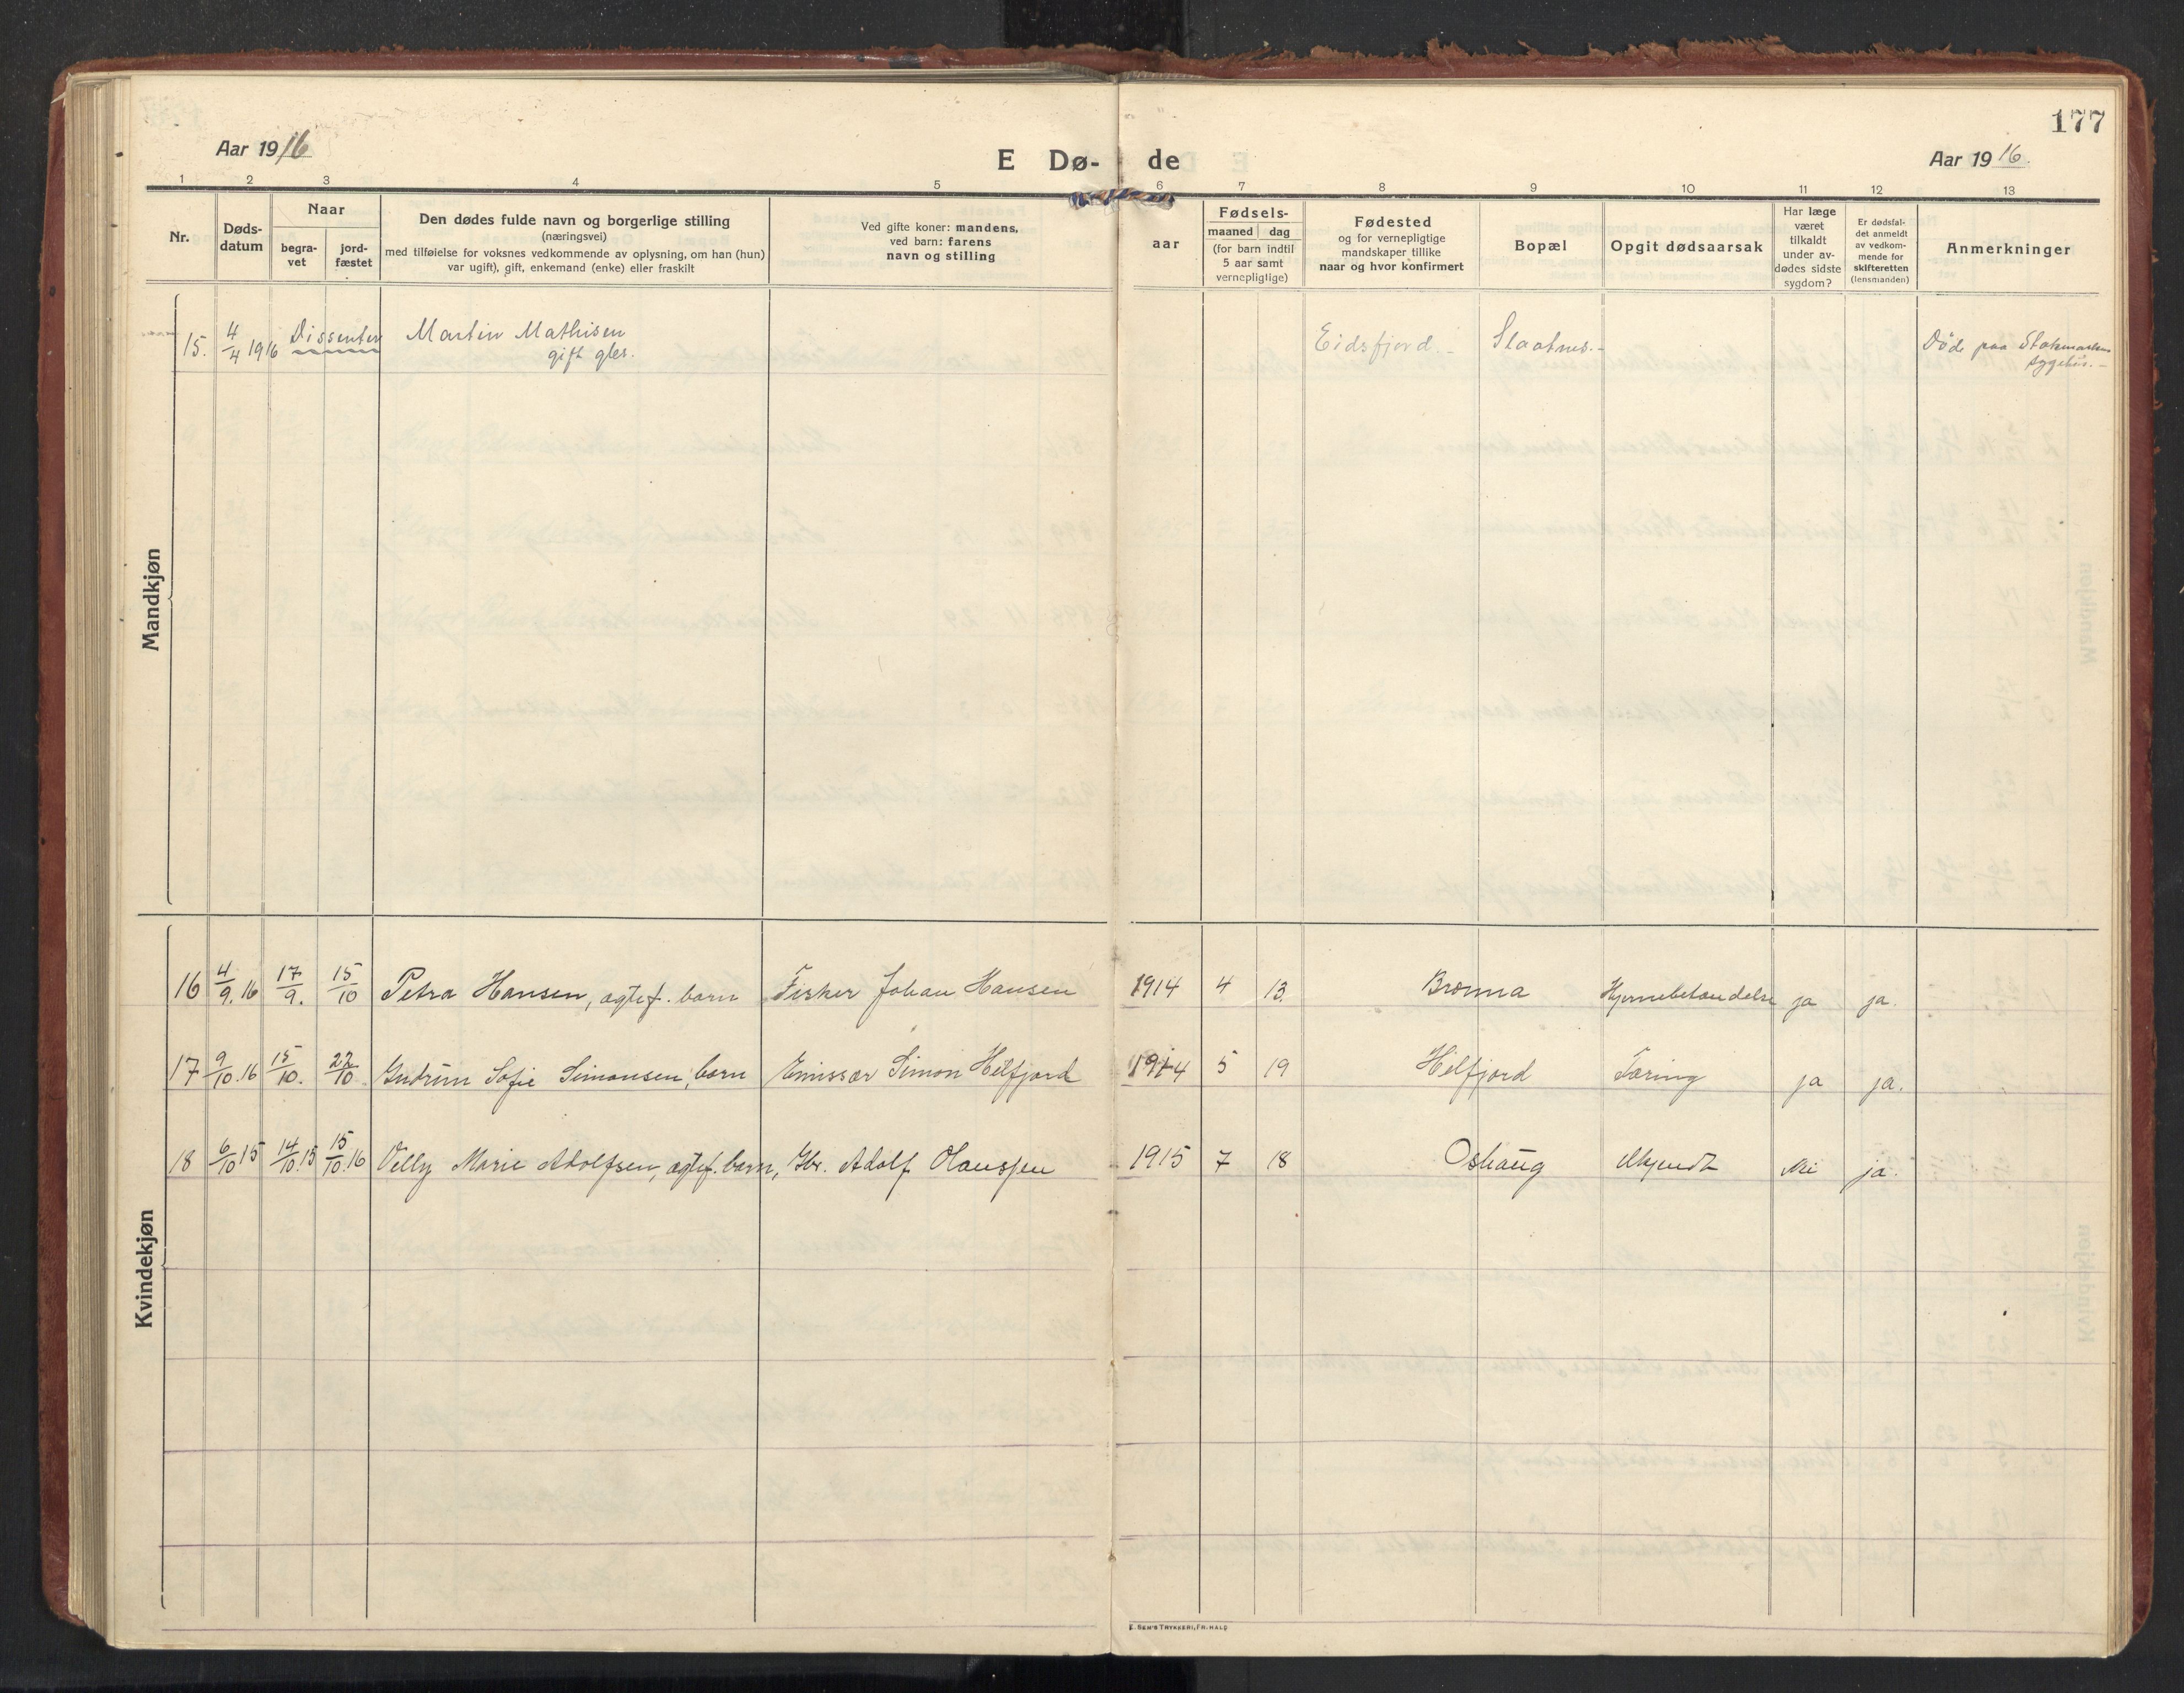 177
Aar 1916
E Dø- de
Aar 1916.
1 2 3 4 5 6 7 8 9 10 11 12 13
Nr.
Døds-
datum
Naar
begra-
vet
jord-
fæstet
Den dødes fulde navn og borgerlige stilling
(næringsvei)
med tilføielse for voksnes vedkommende av oplysning, om han (hun)
var ugift), gift, enkemand (enke) eller fraskilt
Ved gifte koner: mandens,
ved barn: farens
navn og stilling
aar
Fødsels-
maaned dag
(for barn indtil
5 aar samt
vernepligtige)
Fødested
og for vernepligtige
mandskaper tillike
naar og hvor konfirmert
Bopæl
Opgit dødsaarsak
Har læge
været
tilkaldt
under av-
dødes sidste
sygdom?
Er dødsfal-
det anmeldt
av vedkom-
mende for
skifteretten
(lensmanden)
Anmerkninger
Mandkjøn
15. 4/4 1916 Dissenter Martin Mathisen Eidsfjord.- Slaatnes.- Døde paa Stokmarkn
gift gbr. sygehus.-
Kvindekjøn
16 4/9.16 17/9. 15/10 Petra Hansen, ægtef. barn Fisker Johan Hansen 1914 4 13. Brønna Hjernebetændelse ja ja.
17 9/10.16 15/10. 22/10 Gudrun Sofie Simonsen, barn Emissær Simon Hilfjord 1914 5 19 Hilfjord Tæring ja ja.
18 6/10 15 14/10.15 15/10.16 Velly Marie Adolfsen, ægtef. barn, Gbr. Adolf Olaussen 1915 7 18 Oshaug Ukjendt Nei ja.
E. SEM'S TRYKKERI, FR.HALD